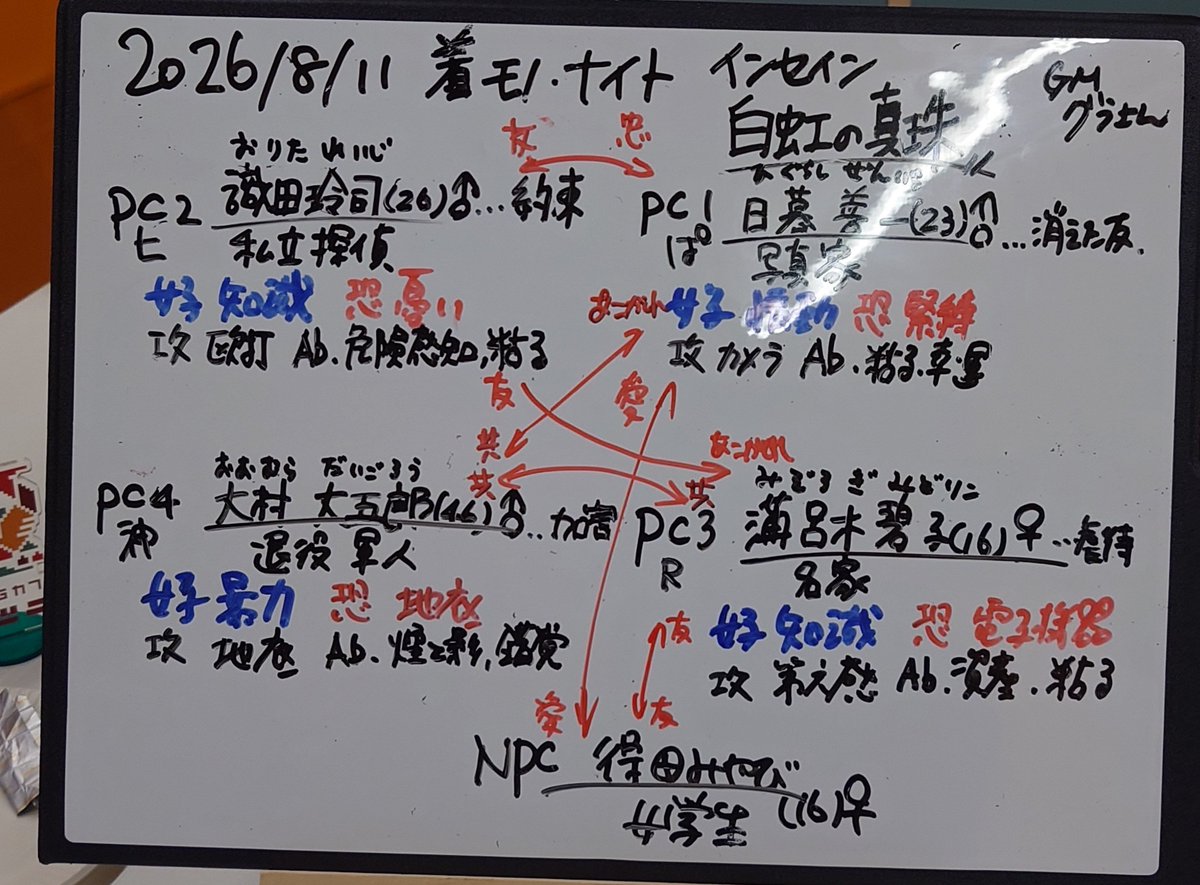 2026/8/11 着モノ・ナイト インセイン
白虹の真珠
GM
グラさん
友 忠
おりた れいじ
PC2 織田玲司(26)♂…約束
ヒ 私立探偵
好 知識 恐 憂い
攻 殴打 Ab.危険感知,粘る
PC1 日暮 善一(23)♂…消えた友.
ぱ 写真家
好 情動 恐 緊縛
攻 カメラ Ab.粘る.幸運
友
愛
共
共
共
おおむら だいごろう
PC4 大村 大五郎(46)♂…加害
神 退役軍人
好 暴力 恐 地底
攻 地底 Ab.煙と影,錯覚
みぞろぎ みどりこ
PC3 溝呂木 碧子(16)♀…虐待
R 名家
好 知識 恐 電子機器
攻 第六感 Ab.資産.粘る
友
愛 友
NPC 得田みやび
女学生 (16)♀